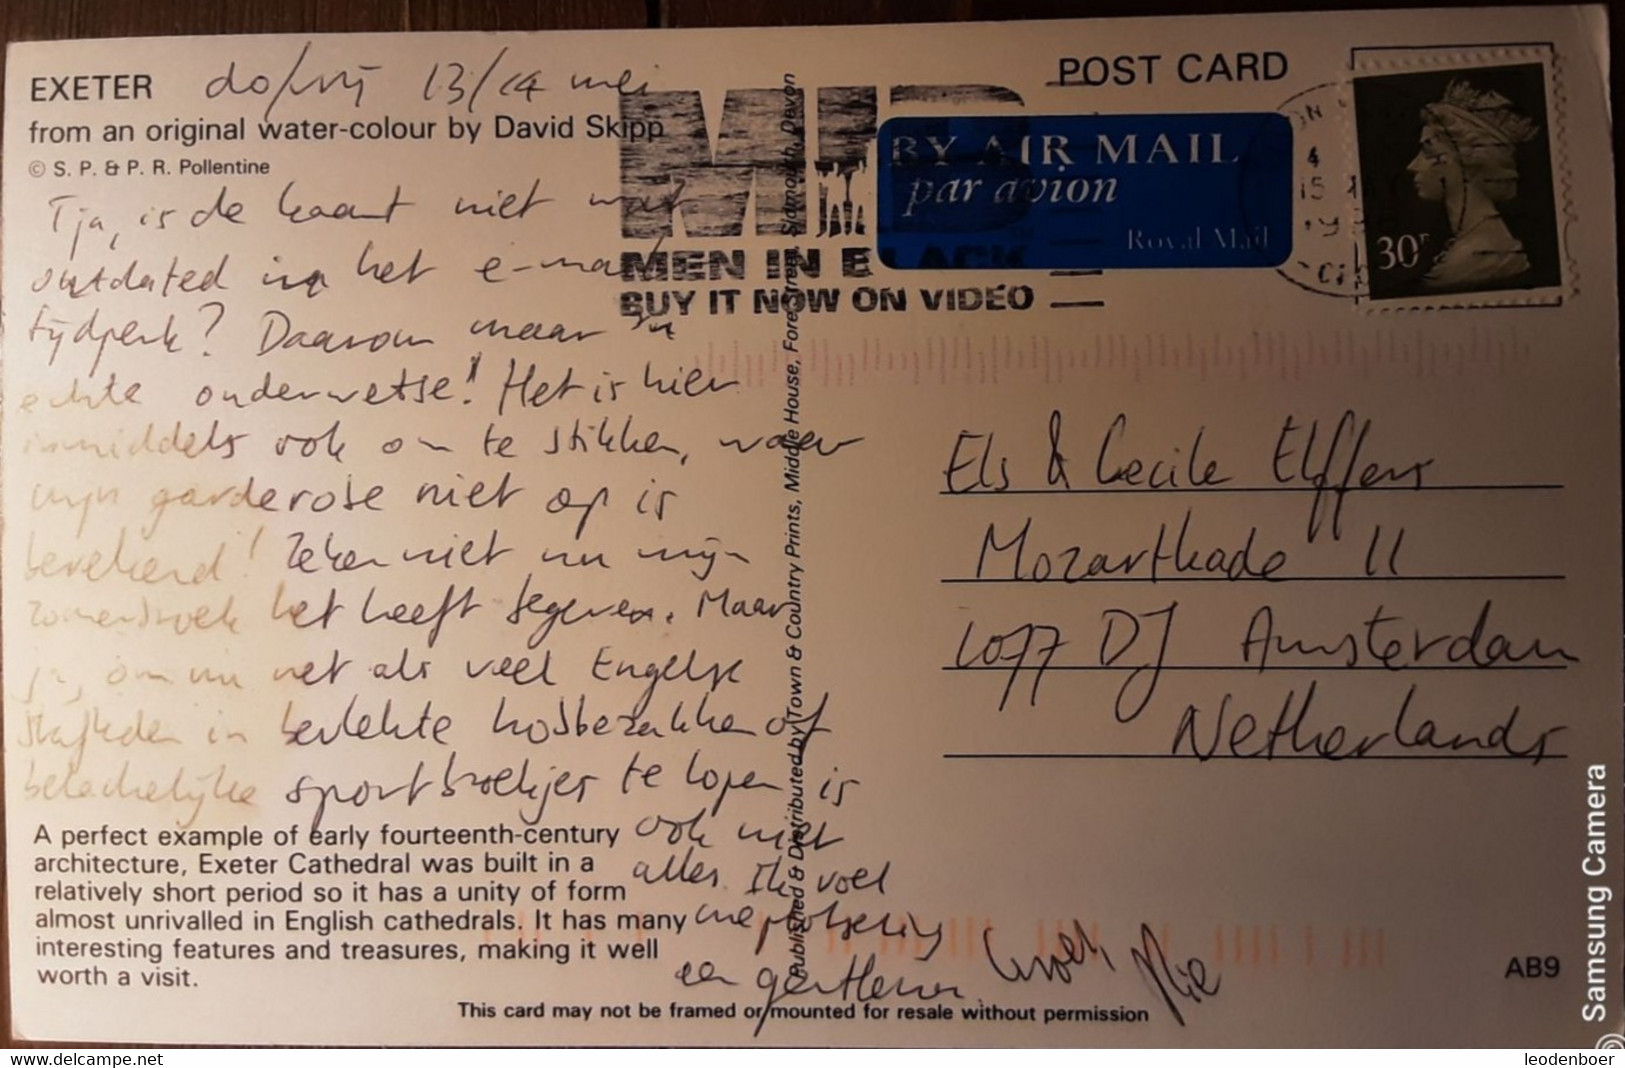 EXETER do/vrij 13/14 mei
from an original water-colour by David Skipp
© S. P. & P. R. Pollentine
Tja, is de kaart niet wat
outdated in het e-mail
tijdperk? Daarom maar 'n
echte ouderwetse! Het is hier
inmiddels ook om te stikken, waar
mijn garderobe niet op is
berekend! Zeker niet nu mijn
zomerbroek het heeft begeven. Maar
ja, om nu net als veel Engelse
in bevlekte te lopen is
belachelijke sportbroekjes
ook niet
alles. Ik voel
me plotseling
een gentleman.
A perfect example of early fourteenth-century
architecture, Exeter Cathedral was built in a
relatively short period so it has a unity of form
almost unrivalled in English cathedrals. It has many
interesting features and treasures, making it well
worth a visit.
This card may not be framed or mounted for resale without permission
Published & Distributed by Town & Country Prints, Middle House, Fore Street, Sidmouth, Devon
POST CARD
MIB
MEN IN BLACK
BUY IT NOW ON VIDEO
BY AIR MAIL
par avion
Royal Mail
30P
Els & Cecile Elffers
Mozartkade 11
1077 DJ Amsterdam
Netherlands
AB9
Samsung Camera
https://www.delcampe.net
leodenboer